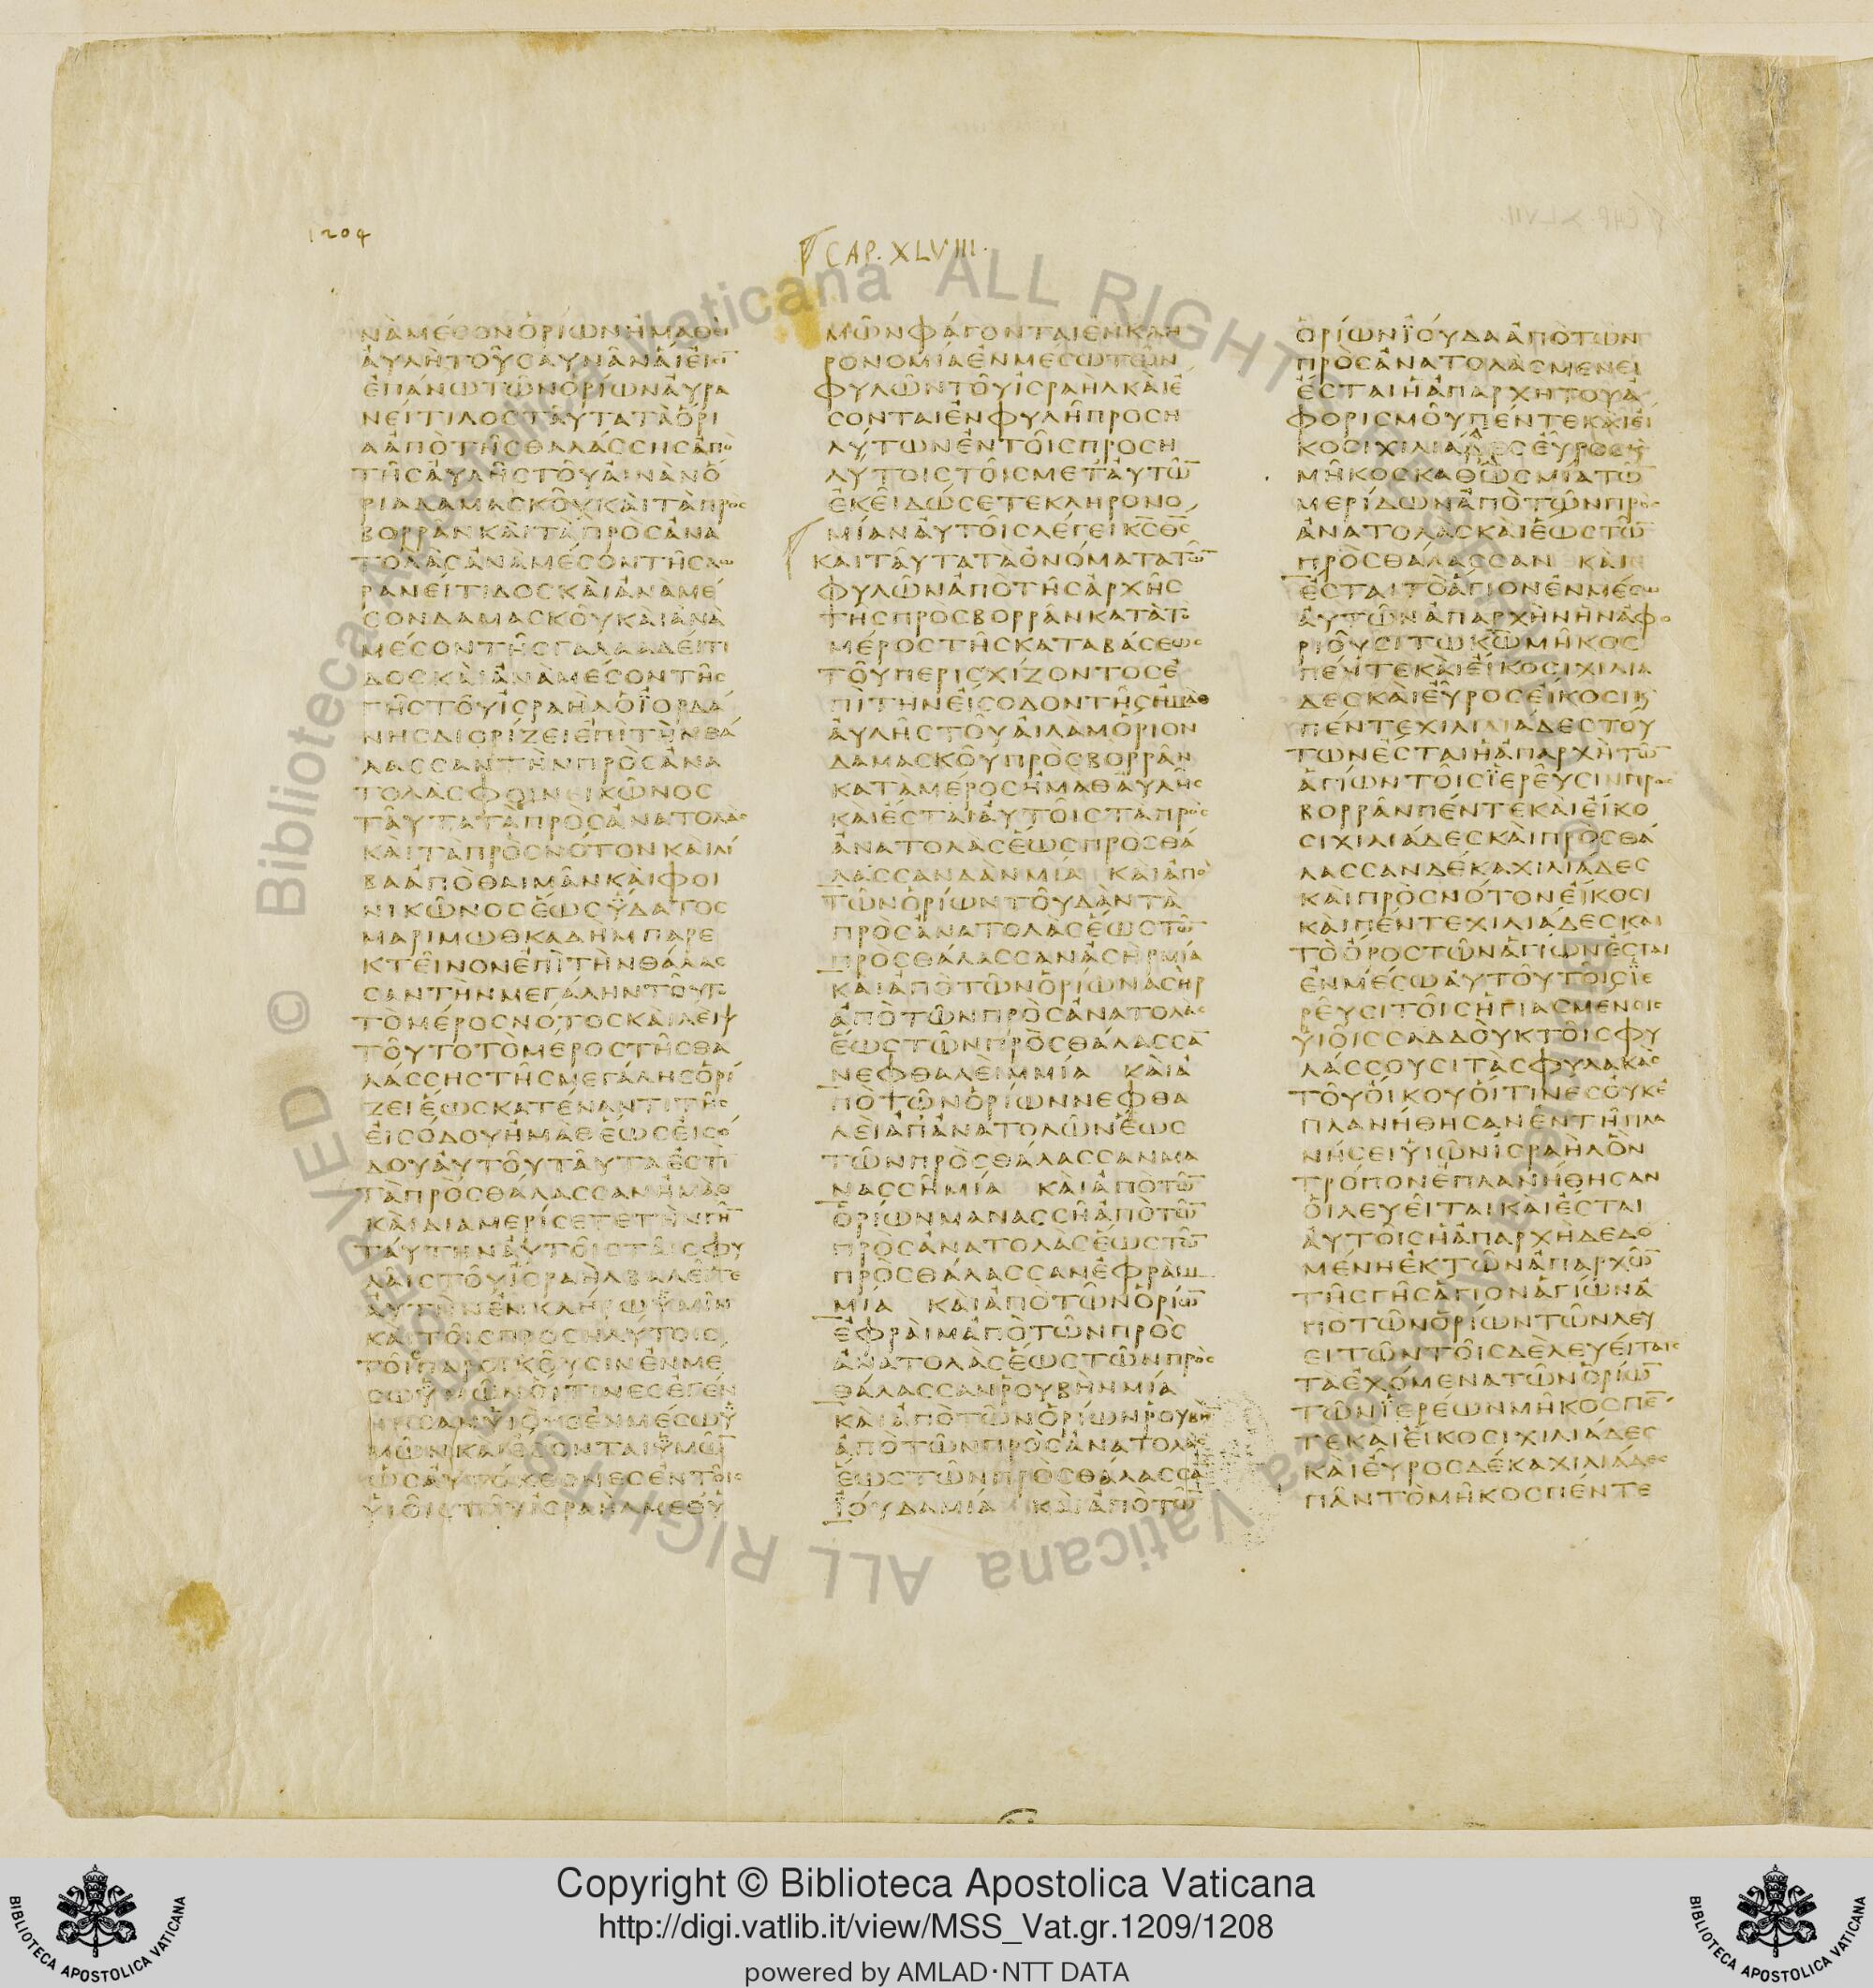 1204
CAP. XLVIII.
ΝΑΜΕΣΟΝΟΡΙΩΝΗΜΑΘΟΥ
ΑΥΛΗΤΟΥΣΑΥΝΑΝΑΙΕΙΣΙ̅
ΕΠΑΝΩΤΩΝΟΡΙΩΝΑΥΡΑ
ΝΕΙΤΙΔΟΣΤΑΥΤΑΤΑΟΡΙ
ΑΑΠΟΤΗΣΘΑΛΑΣΣΗΣΑΠΟ
ΤΗΣΑΥΛΗΣΤΟΥΑΙΝΑΝΟ
ΡΙΑΔΑΜΑΣΚΟΥΚΑΙΤΑΠΡΟΣ
ΒΟΡΡΑΝΚΑΙΤΑΠΡΟΣΑΝΑ
ΤΟΛΑΣΑΝΑΜΕΣΟΝΤΗΣΑΥ
ΡΑΝΕΙΤΙΔΟΣΚΑΙΑΝΑΜΕ
ΣΟΝΔΑΜΑΣΚΟΥΚΑΙΑΝΑ
ΜΕΣΟΝΤΗΣΓΑΛΑΑΔΕΙΤΙ
ΔΟΣΚΑΙΑΝΑΜΕΣΟΝΤΗΣ
ΓΗΣΤΟΥΙΣΡΑΗΛΟΪΟΡΔΑ
ΝΗΣΔΙΟΡΙΖΕΙΕΠΙΤΗΝΘΑ
ΛΑΣΣΑΝΤΗΝΠΡΟΣΑΝΑ
ΤΟΛΑΣΦΟΙΝΕΙΚΩΝΟΣ
ΤΑΥΤΑΤΑΠΡΟΣΑΝΑΤΟΛΑΣ
ΚΑΙΤΑΠΡΟΣΝΟΤΟΝΚΑΙΛΙ
ΒΑΑΠΟΘΑΙΜΑΝΚΑΙΦΟΙ
ΝΙΚΩΝΟΣΕΩΣΫΔΑΤΟΣ
ΜΑΡΙΜΩΘΚΑΔΗΜΠΑΡΕ
ΚΤΕΙΝΟΝΕΠΙΤΗΝΘΑΛΑΣ
ΣΑΝΤΗΝΜΕΓΑΛΗΝΤΟΥΤΟ
ΤΟΜΕΡΟΣΝΟΤΟΣΚΑΙΛΕΙΨ
ΤΟΥΤΟΤΟΜΕΡΟΣΤΗΣΘΑ
ΛΑΣΣΗΣΤΗΣΜΕΓΑΛΗΣΟΡΙ
ΖΕΙΕΩΣΚΑΤΕΝΑΝΤΙΤΗΣ
ΕΙΣΟΔΟΥΗΜΑΘΕΩΣΕΙΣΟ
ΔΟΥΑΥΤΟΥΤΑΥΤΑΕΣΤΙ̅
ΤΑΠΡΟΣΘΑΛΑΣΣΑΝΗΜΑΘ
ΚΑΙΔΙΑΜΕΡΙΣΕΤΕΤΗΝΓΗ̅
ΤΑΥΤΗΝΑΥΤΟΙΣΤΑΙΣΦΥ
ΛΑΙΣΤΟΥΙΣΡΑΗΛΒΑΛΕΙΤΕ
ΑΥΤΗΝΕΝΚΛΗΡΩΫΜΙΝ
ΚΑΙΤΟΙΣΠΡΟΣΗΛΥΤΟΙΣ
ΤΟΙΣΠΑΡΟΙΚΟΥΣΙΝΕΝΜΕ
ΣΩΫΜΩΝΟΙΤΙΝΕΣΕΓΕΝ
ΝΗΣΑΝΫΙΟΥΣΕΝΜΕΣΩΫ
ΜΩΝΚΑΙΕΣΟΝΤΑΙΫΜΩ̅
ΩΣΑΥΤΟΧΘΟΝΕΣΕΝΤΟΙΣ
ΫΙΟΙΣΤΟΥΙΣΡΑΗΛΜΕΘΥ
ΜΩΝΦΑΓΟΝΤΑΙΕΝΚΛΗ
ΡΟΝΟΜΙΑΕΝΜΕΣΩΤΩΝ
ΦΥΛΩΝΤΟΥΙΣΡΑΗΛΚΑΙΕ
ΣΟΝΤΑΙΕΝΦΥΛΗΠΡΟΣΗ
ΛΥΤΩΝΕΝΤΟΙΣΠΡΟΣΗ
ΛΥΤΟΙΣΤΟΙΣΜΕΤΑΥΤΩ̅
ΕΚΕΙΔΩΣΕΤΕΚΛΗΡΟΝΟ
ΜΙΑΝΑΥΤΟΙΣΛΕΓΕΙΚ̅Σ̅Θ̅Σ̅
ΚΑΙΤΑΥΤΑΤΑΟΝΟΜΑΤΑΤΩ̅
ΦΥΛΩΝΑΠΟΤΗΣΑΡΧΗΣ
ΤΗΣΠΡΟΣΒΟΡΡΑΝΚΑΤΑΤΟ
ΜΕΡΟΣΤΗΣΚΑΤΑΒΑΣΕΩΣ
ΤΟΥΠΕΡΙΣΧΙΖΟΝΤΟΣΕ
ΠΙΤΗΝΕΙΣΟΔΟΝΤΗΣΗΜΑΘ
ΑΥΛΗΣΤΟΥΑΙΛΑΜΟΡΙΟΝ
ΔΑΜΑΣΚΟΥΠΡΟΣΒΟΡΡΑΝ
ΚΑΤΑΜΕΡΟΣΗΜΑΘΑΥΛΗΣ
ΚΑΙΕΣΤΑΙΑΥΤΟΙΣΤΑΠΡΟΣ
ΑΝΑΤΟΛΑΣΕΩΣΠΡΟΣΘΑ
ΛΑΣΣΑΝΔΑΝΜΙΑ ΚΑΙΑΠΟ
ΤΩΝΟΡΙΩΝΤΟΥΔΑΝΤΑ
ΠΡΟΣΑΝΑΤΟΛΑΣΕΩΣΤΩ̅
ΠΡΟΣΘΑΛΑΣΣΑΝΑΣΗΡΜΙΑ
ΚΑΙΑΠΟΤΩΝΟΡΙΩΝΑΣΗΡ
ΑΠΟΤΩΝΠΡΟΣΑΝΑΤΟΛΑΣ
ΕΩΣΤΩΝΠΡΟΣΘΑΛΑΣΣΑ̅
ΝΕΦΘΑΛΕΙΜΜΙΑ ΚΑΙΑ
ΠΟΤΩΝΟΡΙΩΝΝΕΦΘΑ
ΛΕΙΑΠΑΝΑΤΟΛΩΝΕΩΣ
ΤΩΝΠΡΟΣΘΑΛΑΣΣΑΝΜΑ
ΝΑΣΣΗΜΙΑ ΚΑΙΑΠΟΤΩ̅
ΟΡΙΩΝΜΑΝΑΣΣΗΑΠΟΤΩ̅
ΠΡΟΣΑΝΑΤΟΛΑΣΕΩΣΤΩ̅
ΠΡΟΣΘΑΛΑΣΣΑΝΕΦΡΑΙΜ
ΜΙΑ ΚΑΙΑΠΟΤΩΝΟΡΙΩ̅
ΕΦΡΑΙΜΑΠΟΤΩΝΠΡΟΣ
ΑΝΑΤΟΛΑΣΕΩΣΤΩΝΠΡΟΣ
ΘΑΛΑΣΣΑΝΡΟΥΒΗΝΜΙΑ
ΚΑΙΑΠΟΤΩΝΟΡΙΩΝΡΟΥΒΗ̅
ΑΠΟΤΩΝΠΡΟΣΑΝΑΤΟΛΑΣ
ΕΩΣΤΩΝΠΡΟΣΘΑΛΑΣΣΑ̅
ΪΟΥΔΑΜΙΑ ΚΑΙΑΠΟΤΩ̅
ΟΡΙΩΝΪΟΥΔΑΑΠΟΤΩΝ
ΠΡΟΣΑΝΑΤΟΛΑΣΜΕΝΕΙ
ΕΣΤΑΙΗΑΠΑΡΧΗΤΟΥΑ
ΦΟΡΙΣΜΟΥΠΕΝΤΕΚΑΙΕΙ
ΚΟΣΙΧΙΛΙΑΔΕΣΕΥΡΟΣΚΑΙ
ΜΗΚΟΣΚΑΘΩΣΜΙΑΤΩ̅
ΜΕΡΙΔΩΝΑΠΟΤΩΝΠΡΟΣ
ΑΝΑΤΟΛΑΣΚΑΙΕΩΣΤΩ̅
ΠΡΟΣΘΑΛΑΣΣΑΝ ΚΑΙ
ΕΣΤΑΙΤΟΑΓΙΟΝΕΝΜΕΣΩ
ΑΥΤΩΝΑΠΑΡΧΗΝΗΝΑΦΟ
ΡΙΟΥΣΙΤΩΚ̅Ω̅ΜΗΚΟΣ
ΠΕΝΤΕΚΑΙΕΙΚΟΣΙΧΙΛΙΑ
ΔΕΣΚΑΙΕΥΡΟΣΕΙΚΟΣΙΚΑΙ
ΠΕΝΤΕΧΙΛΙΛΙΑΔΕΣΤΟΥ
ΤΩΝΕΣΤΑΙΗΑΠΑΡΧΗΤΩ̅
ΑΓΙΩΝΤΟΙΣΪΕΡΕΥΣΙΝΠΡΟΣ
ΒΟΡΡΑΝΠΕΝΤΕΚΑΙΕΙΚΟ
ΣΙΧΙΛΙΑΔΕΣΚΑΙΠΡΟΣΘΑ
ΛΑΣΣΑΝΔΕΚΑΧΙΛΙΑΔΕΣ
ΚΑΙΠΡΟΣΝΟΤΟΝΕΙΚΟΣΙ
ΚΑΙΠΕΝΤΕΧΙΛΙΑΔΕΣΚΑΙ
ΤΟΟΡΟΣΤΩΝΑΓΙΩΝΕΣΤΑΙ
ΕΝΜΕΣΩΑΥΤΟΥΤΟΙΣΪΕ
ΡΕΥΣΙΤΟΙΣΗΓΙΑΣΜΕΝΟΙΣ
ΥΙΟΙΣΣΑΔΔΟΥΚΤΟΙΣΦΥ
ΛΑΣΣΟΥΣΙΤΑΣΦΥΛΑΚΑΣ
ΤΟΥΟΙΚΟΥΟΙΤΙΝΕΣΟΥΚΕ
ΠΛΑΝΗΘΗΣΑΝΕΝΤΗΠΛΑ
ΝΗΣΕΙΥΙΩΝΙΣΡΑΗΛΟΝ
ΤΡΟΠΟΝΕΠΛΑΝΗΘΗΣΑΝ
ΟΙΛΕΥΕΙΤΑΙΚΑΙΕΣΤΑΙ
ΑΥΤΟΙΣΗΑΠΑΡΧΗΔΕΔΟ
ΜΕΝΗΕΚΤΩΝΑΠΑΡΧΩ̅
ΤΗΣΓΗΣΑΓΙΟΝΑΓΙΩΝΑ
ΠΟΤΩΝΟΡΙΩΝΤΩΝΛΕΥ
ΕΙΤΩΝΤΟΙΣΔΕΛΕΥΕΙΤΑΙΣ
ΤΑΕΧΟΜΕΝΑΤΩΝΟΡΙΩ̅
ΤΩΝΪΕΡΕΩΝΜΗΚΟΣΠΕ̅
ΤΕΚΑΙΕΙΚΟΣΙΧΙΛΙΑΔΕΣ
ΚΑΙΕΥΡΟΣΔΕΚΑΧΙΛΙΑΔΕΣ
ΠΑΝΤΟΜΗΚΟΣΠΕΝΤΕ
© Biblioteca Apostolica Vaticana ALL RIGHTS RESERVED
Copyright © Biblioteca Apostolica Vaticana
http://digi.vatlib.it/view/MSS_Vat.gr.1209/1208
powered by AMLAD·NTT DATA
BIBLIOTECA APOSTOLICA VATICANA
BIBLIOTECA APOSTOLICA VATICANA